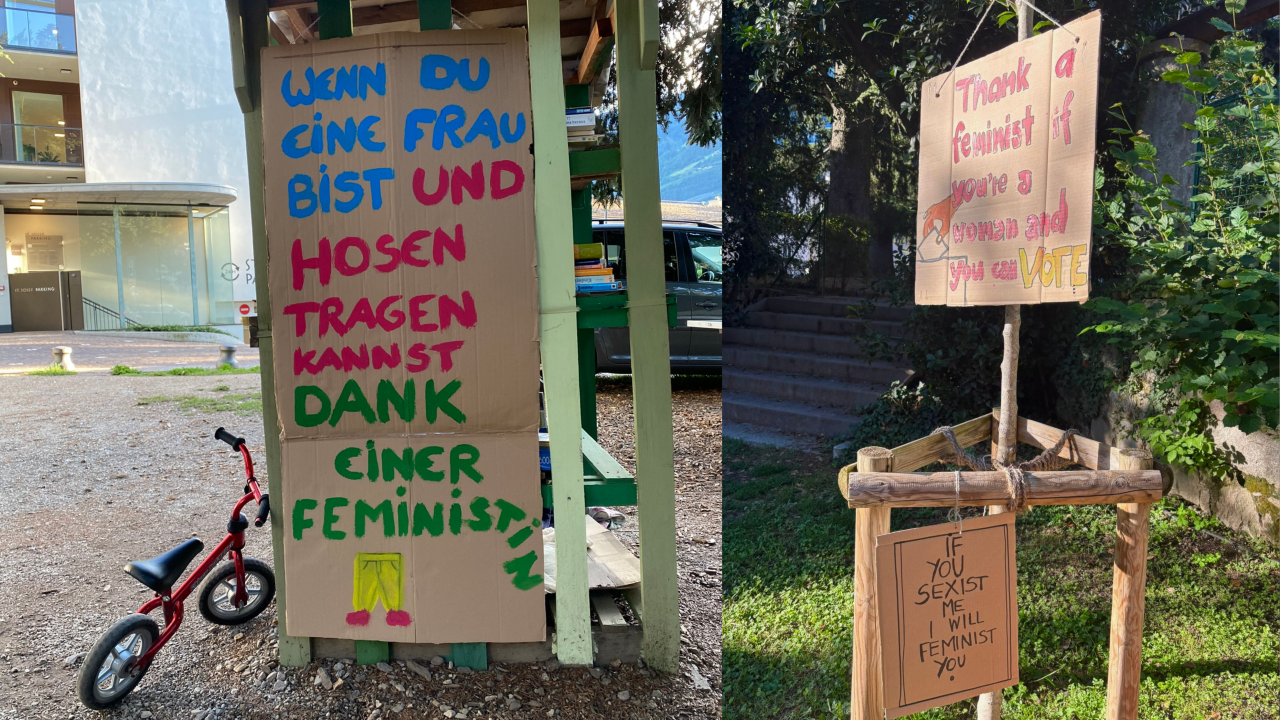 WENN DU
EINE FRAU
BIST UND
HOSEN
TRAGEN
KANNST
DANK
EINER
FEMINISTIN
ST. JOSEF PARKING
Thank a
feminist if
you're a
woman and
you can VOTE
IF
YOU
SEXIST
ME
I WILL
FEMINIST
YOU.